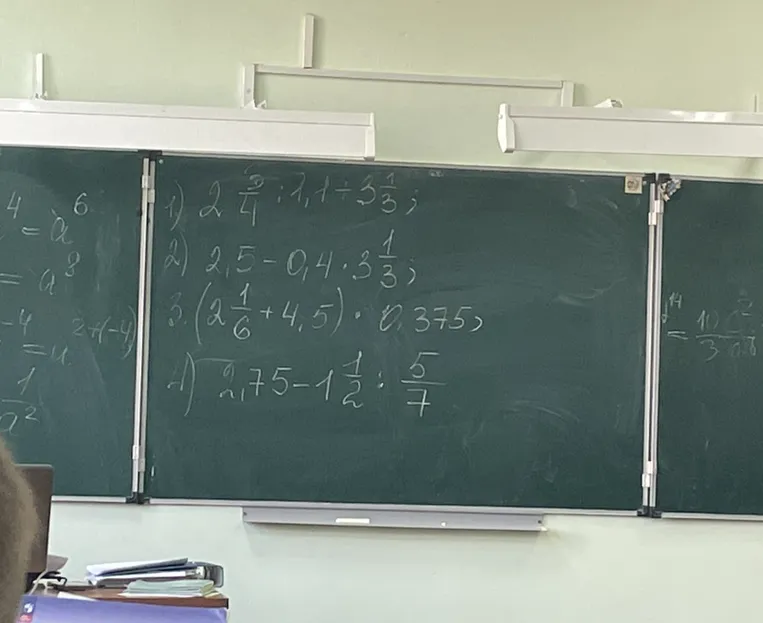 4 6
= a
= a⁸
-4 2+(-4)
1
a²
1) 2 3/4 : 1,1 + 3 1/3;
2) 2,5 - 0,4 · 3 1/3;
3. (2 1/6 + 4,5) · 0,375;
4) 2,75 - 1 1/2 : 5/7
14
= 10
3